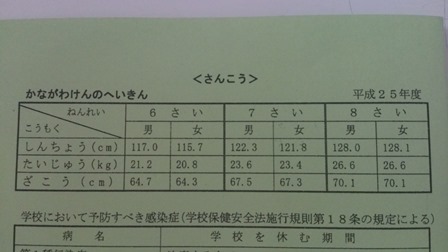 ＜さんこう＞
かながわけんのへいきん 平成２５年度
ねんれい ６さい ７さい ８さい
こうもく 男 女 男 女 男 女
しんちょう(cm) 117.0 115.7 122.3 121.8 128.0 128.1
たいじゅう(kg) 21.2 20.8 23.6 23.4 26.6 26.6
ざこう(cm) 64.7 64.3 67.5 67.3 70.1 70.1
学校において予防すべき感染症(学校保健安全法施行規則第１８条の規定による)
病名 学校を休む期間